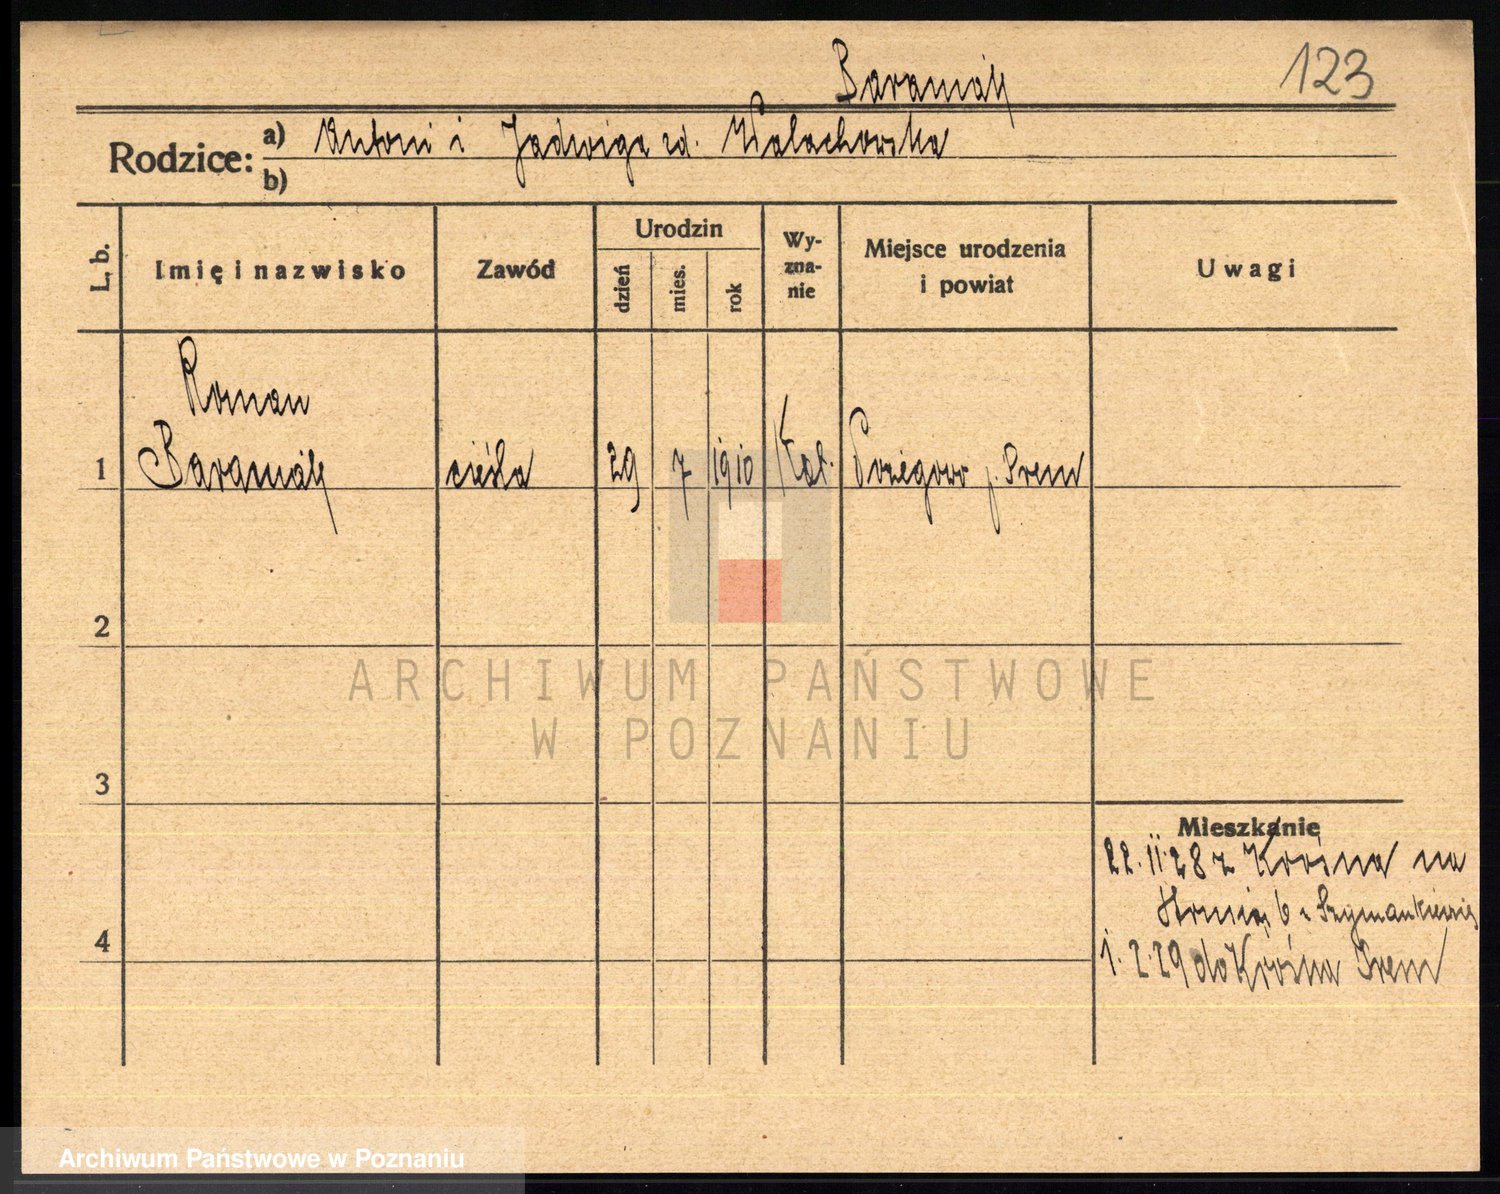 123
Baraniak
Rodzice: a) Antoni i Jadwiga zd. Walachowska
b)
L. b.
Imię i nazwisko
Zawód
Urodzin
dzień
mies.
rok
Wy-
zna-
nie
Miejsce urodzenia
i powiat
Uwagi
Roman
1 Baraniak cieśla 29 7 1910 kat. p. Śrem
2
3
4
Mieszkanie
22.11.28 z Krosna na
6 u
1.2.29 do Krosna Śrem
ARCHIWUM PAŃSTWOWE
W POZNANIU
Archiwum Państwowe w Poznaniu